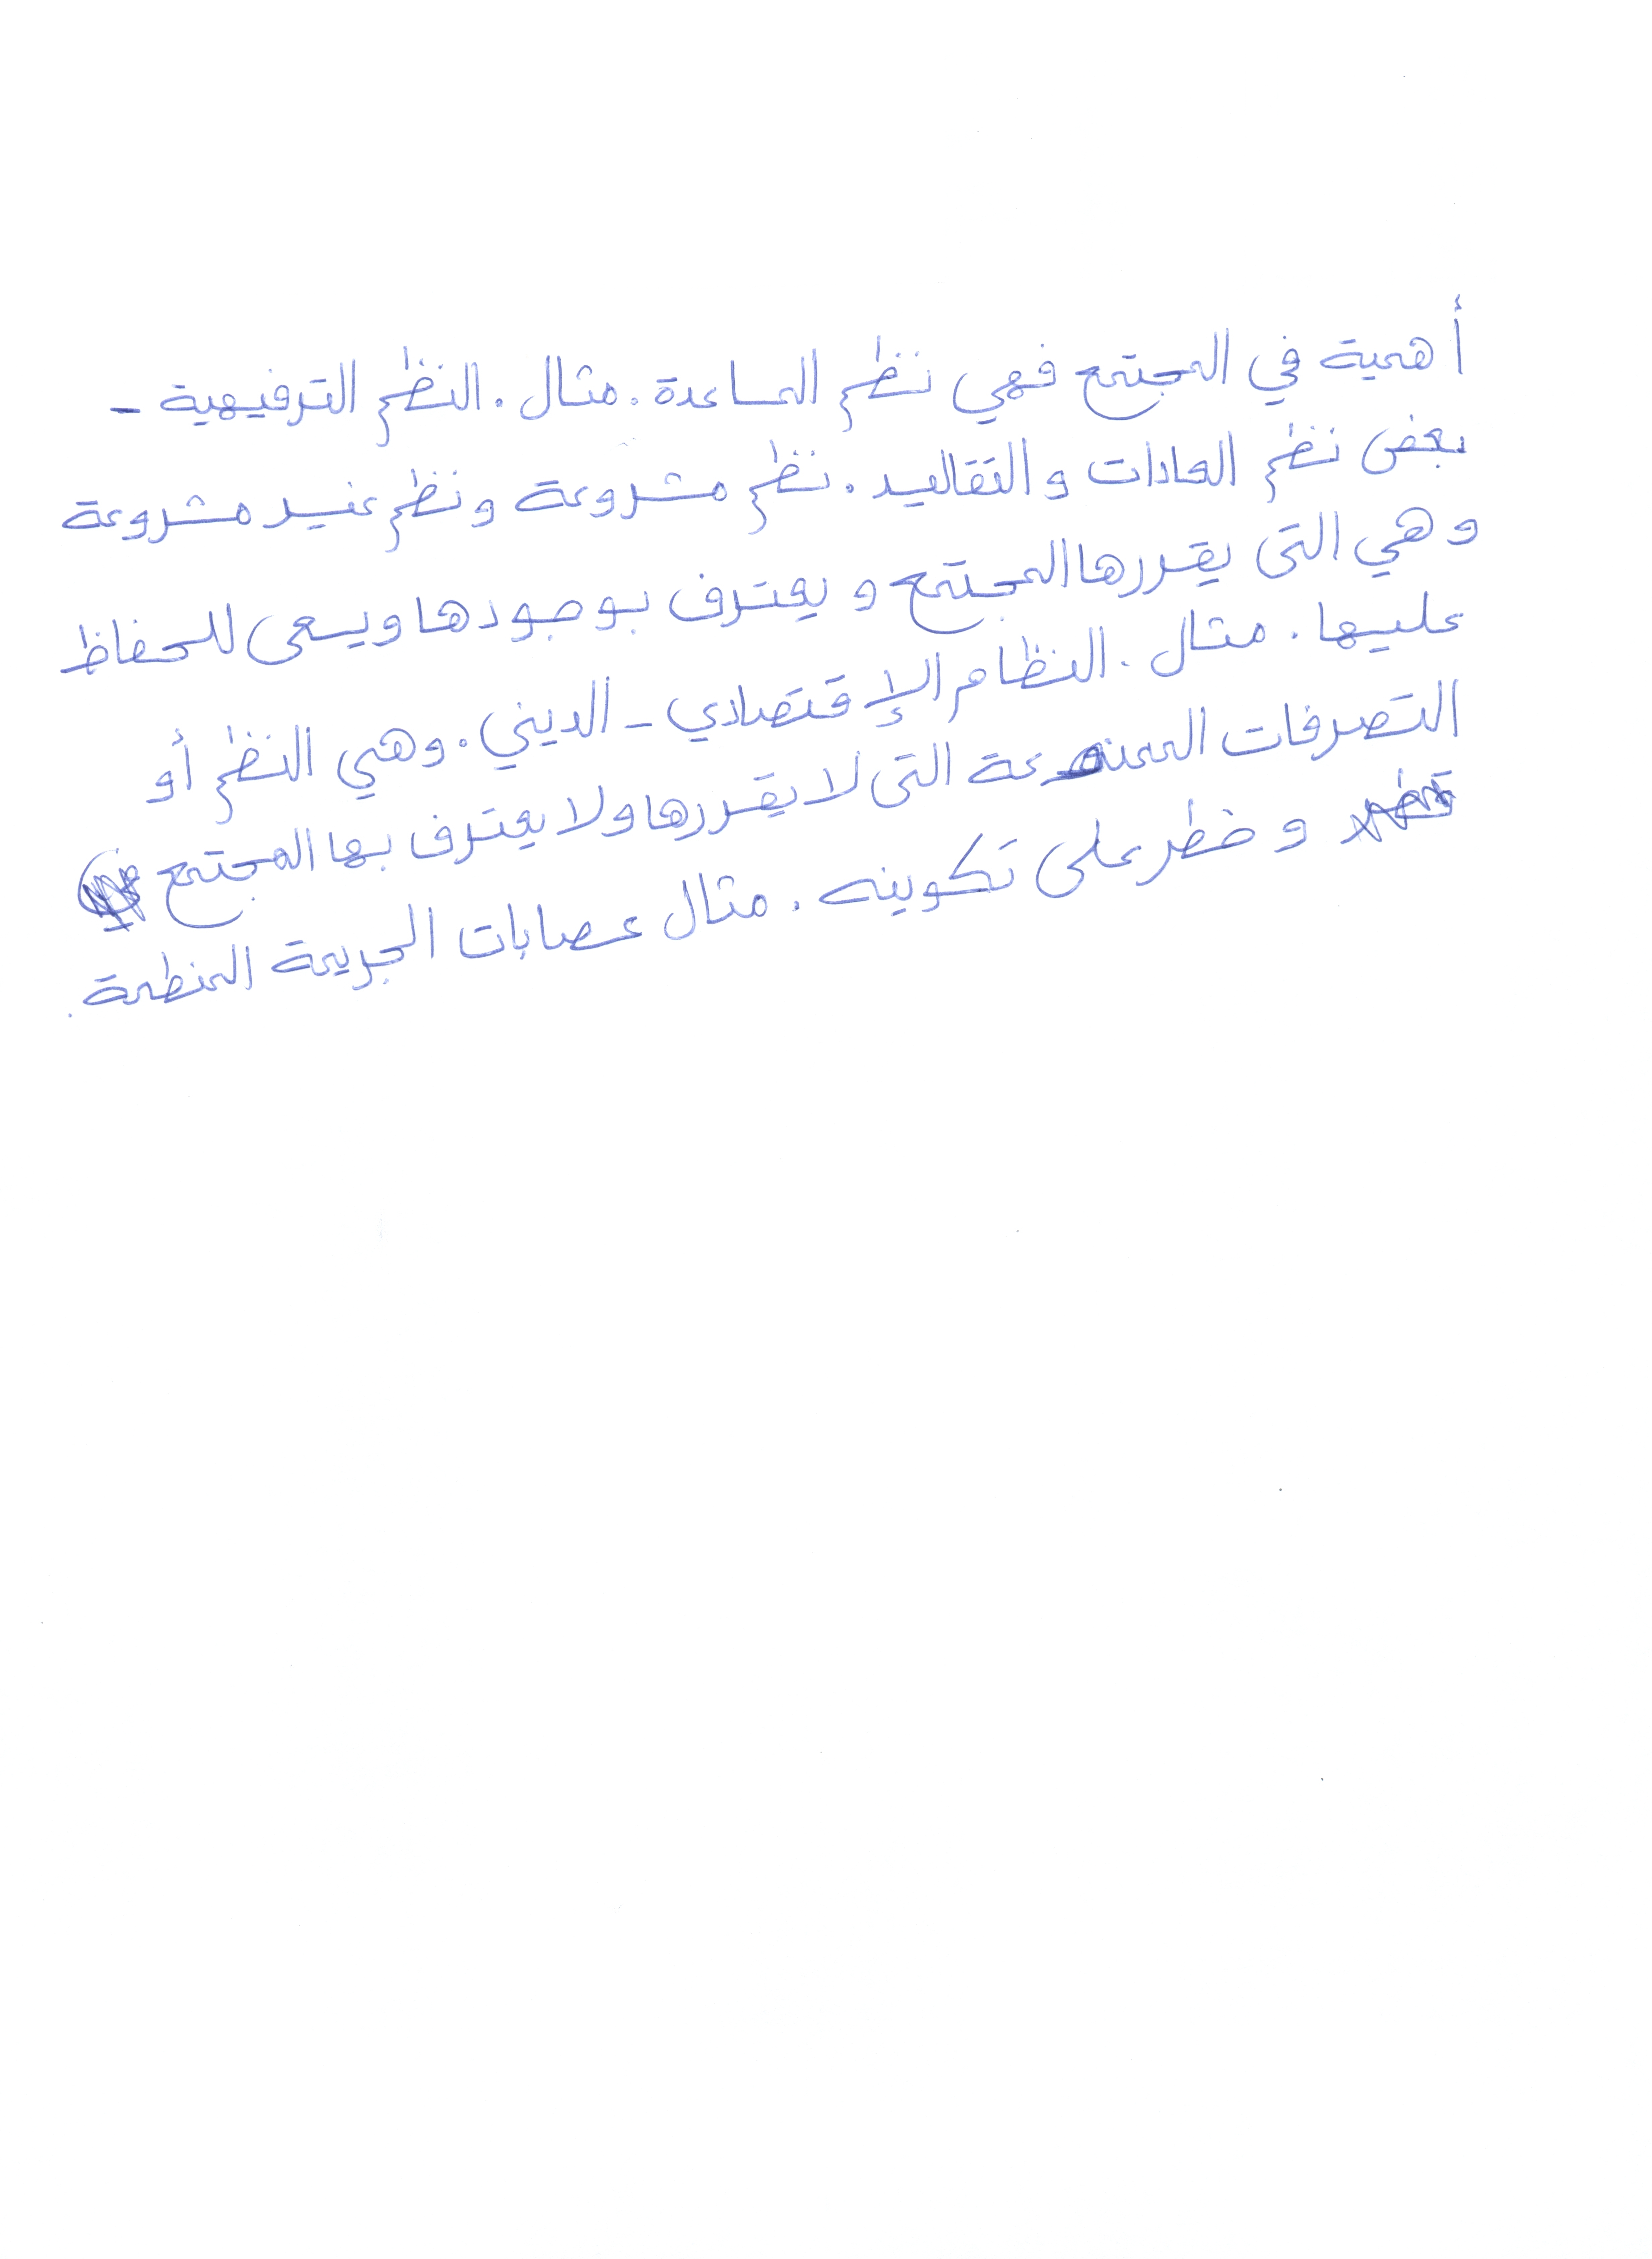 أهمية في المجتمع فهي نظم المساعدة. مثال. النظم الترفيهية -
بعض نظم العادات والتقاليد. نظم مشروعة ونظم غير مشروعة
وهي التى يقررها المجتمع ويعترف بوجودها ويسعى للحفاظ
عليها. مثال. النظام الإقتصادي - الديني. وهي النظم أو
التصرفات الممنوعة التى لا يقررها ولا يعترف بها المجتمع
وخطر على تكوينه. مثال عصابات الجريمة المنظمة.